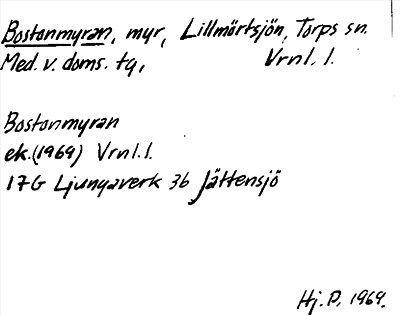 Bostonmyran, myr, Lillmörtsjön, Torps sn.
Med. v. doms. tg, Vrnl. l.
Bostonmyran
ek.(1969) Vrnl. l.
17G Ljungaverk 3b Jättensjö
Hj. P. 1969.